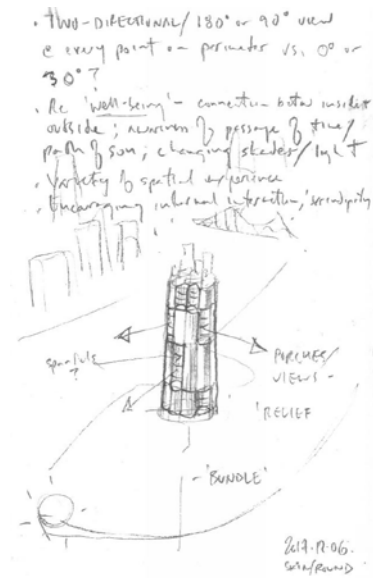 • TWO-DIRECTIONAL / 180° or 90° view
@ every point on perimeter vs. 0° or
30° ?
• Re 'well-being' – connection betw inside &
outside ; awareness of passage of time /
path of sun ; changing shades / light
• Variety of spatial experience
• Encouraging internal interaction, 'serendipity
?
PORCHES /
VIEWS –
'RELIEF
– 'BUNDLE'
2017.12.06.